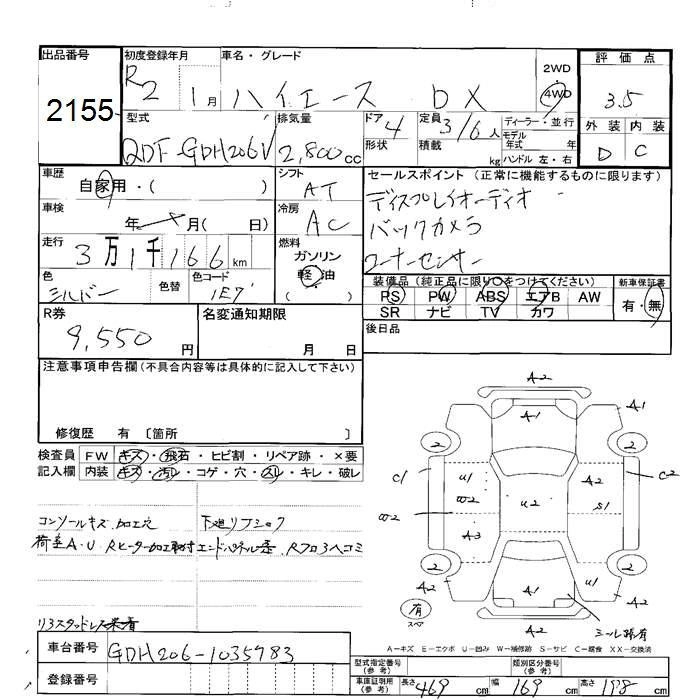 出品番号 初度登録年月 車名・グレード 2WD 評価点
2155 R2 1月 ハイエース DX 4WD 3.5
型式 排気量 ドア 4 定員 3/6人 ディーラー・並行 外装 内装
QDF-GDH206V 2,800cc 形状 積載 kg モデル年式 年 D C
ハンドル 左・右
車歴 シフト セールスポイント (正常に機能するものに限ります)
自家用・( ) AT ディスプレイオーディオ
車検 冷房 バックカメラ
年 月( 日) AC コーナーセンサー
走行 燃料
3万1千166km ガソリン 軽油 ( )
色 色替 色コード 装備品(純正品に限り○をつけてください) 新車保証書
シルバー 1E7 PS PW ABS エアB AW 有・無
R券 名変通知期限 SR ナビ TV カワ
9,550円 月 日 後日品
注意事項申告欄(不具合内容等は具体的に記入して下さい)
修復歴 有 〔箇所 〕
検査員 FW キズ・飛石・ヒビ割・リペア跡・×要
記入欄 内装 キズ・汚レ・コゲ・穴・スレ・キレ・破レ
A2
A1 A1
2 2
C1 U1 A2 C2
W2 U2 S1
W2 A3
2 2
A2 A1 U1 A2
A2
有
コンソールキズ.加工穴 下廻リ
荷室A・U Rヒーター加工取付
リ3スタッドレス
A-キズ E-エクボ U-凹み W-補修跡 S-サビ C-腐食 XX-交換済
車台番号 GDH206-1035983
登録番号
型式指定番号(参考) 類別区分番号(参考)
車庫証明用(参考) 長さ 469cm 幅 169cm 高さ 198cm